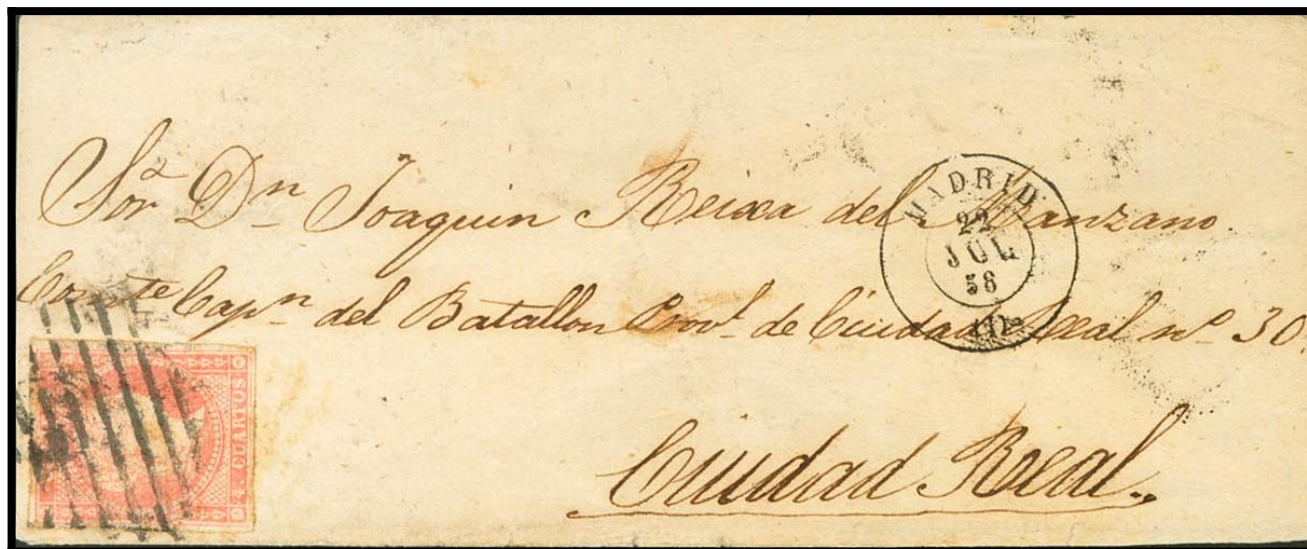 Sor Dn Joaquin Reixa del Manzano.
Capn del Batallon Provl de Ciudad Real nº 30.
Ciudad Real.
MADRID
22
JUL
58
4 CUARTOS